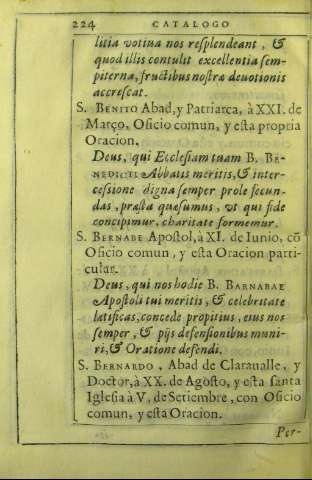 224 CATALOGO
litia votiua nos resplendeant, &
quod illis contulit excellentia sem-
piterna, fructibus nostræ deuotionis
accrescat.
S. BENITO Abad, y Patriarca, à XXI. de
Março, Oficio comun, y esta propria
Oracion.
Deus, qui Ecclesiam tuam B. BE-
NEDICTI Abbatis meritis, & inter-
cessione digna semper prole fecun-
das, præsta quæsumus, vt qui fide
concipimur, charitate formemur.
S. BERNABE Apostol, à XI. de Iunio, cõ
Oficio comun, y esta Oracion parti-
cular.
Deus, qui nos hodie B. BARNABAE
Apostoli tui meritis, & celebritate
latificas, concede propitius, eius nos
semper, & pijs defensionibus muni-
ri, & Oratione defendi.
S. BERNARDO, Abad de Claraualle, y
Doctor, à XX. de Agosto, y esta santa
Iglesia à V. de Setiembre, con Oficio
comun, y esta Oracion.
Per-